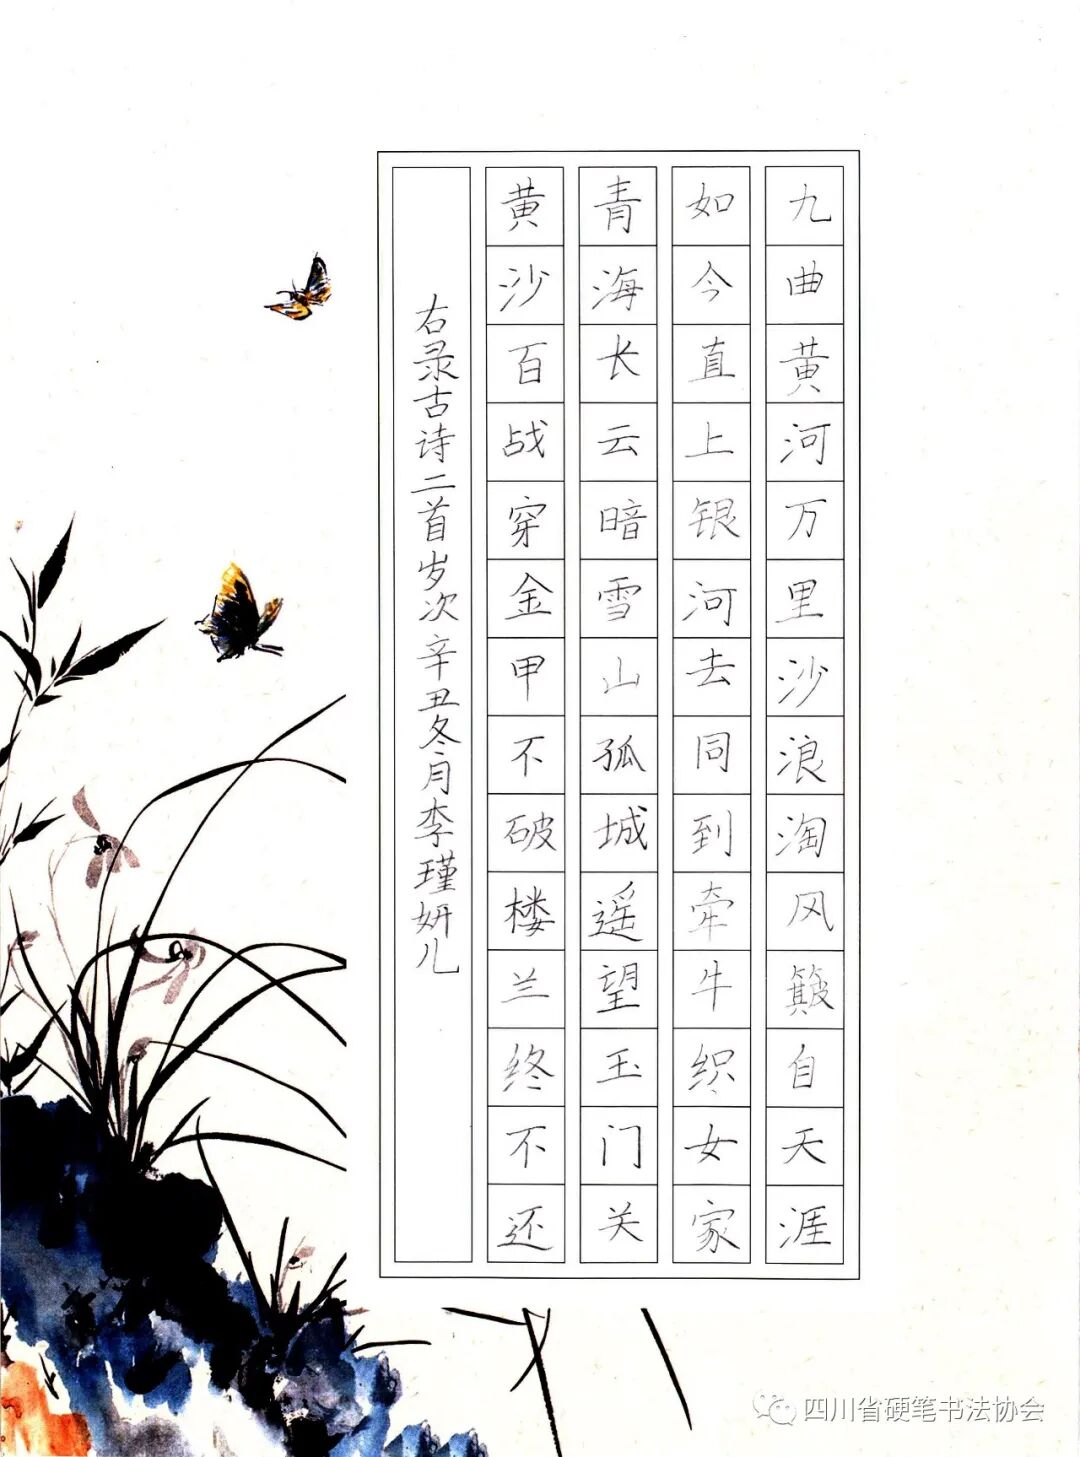 九曲黄河万里沙浪淘风簸自天涯
如今直上银河去同到牵牛织女家
青海长云暗雪山孤城遥望玉门关
黄沙百战穿金甲不破楼兰终不还
右录古诗二首岁次辛丑冬月李瑾妍儿
四川省硬笔书法协会